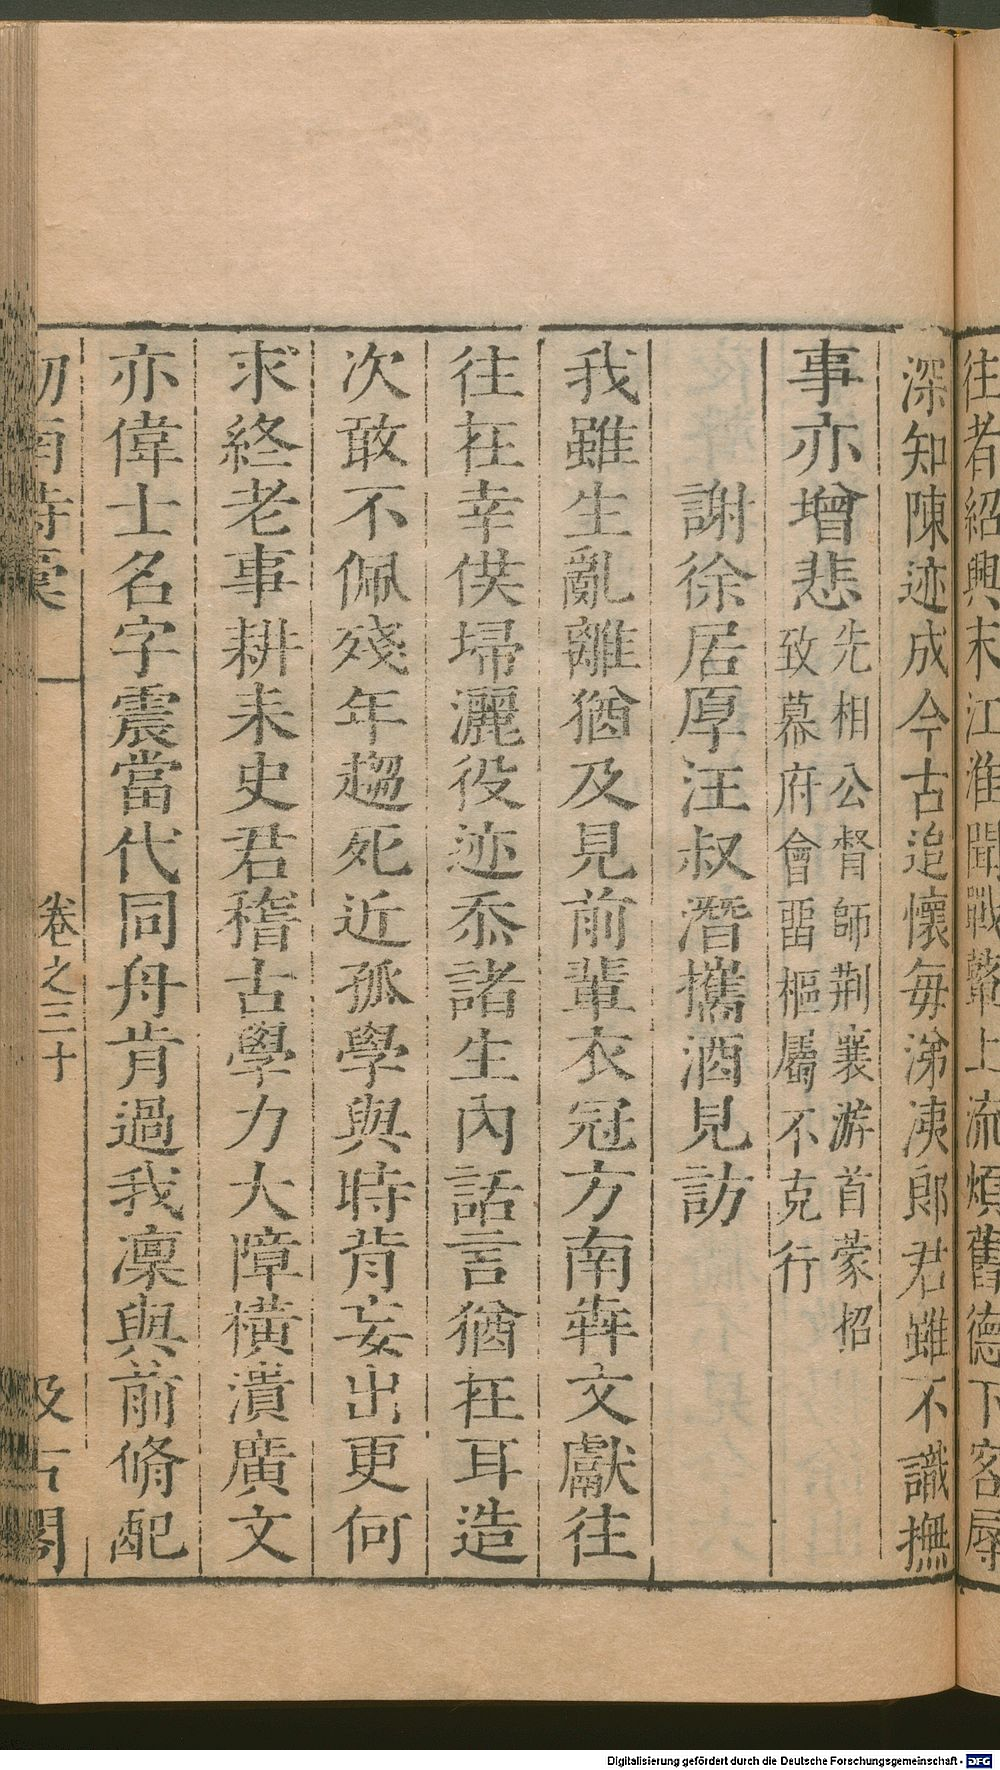 往者紹興末江淮聞戰鼙上流煩舊德下客辱
深知陳迹成今古追懷每涕洟郎君雖不識撫
事亦增悲先相公督師荆襄游首蒙招
致幕府會畱樞屬不克行
謝徐居厚汪叔潛攜酒見訪
我雖生亂離猶及見前輩衣冠方南犇文獻往
往在幸供埽灑役迹忝諸生內話言猶在耳造
次敢不佩殘年趨死近孤學與時背妄出更何
求終老事耕耒史君稽古學力大障橫潰廣文
亦偉士名字震當代同舟肯過我凜與前脩配
劒南詩稾 卷之三十 汲古閣
Digitalisierung gefördert durch die Deutsche Forschungsgemeinschaft - DFG